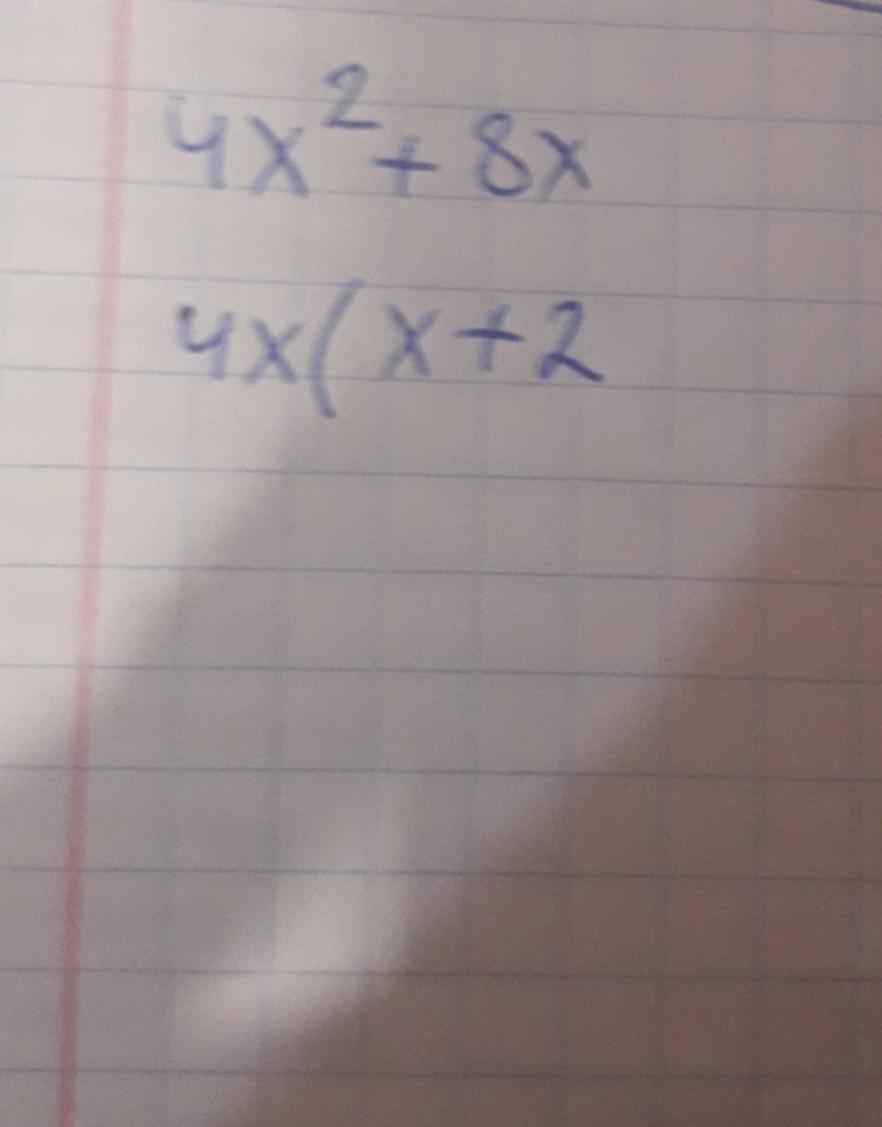 4x² + 8x
4x( x + 2